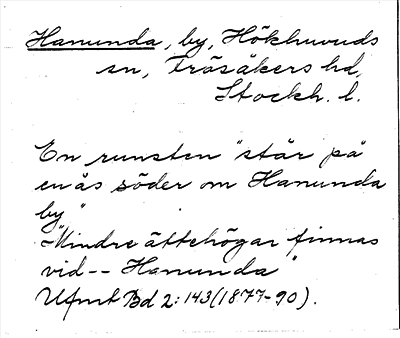 Hanunda, by, Hökhuvuds
sn, Frösåkers hd,
Stockh. l.
En runsten "står på
en ås söder om Hanunda
by"
"Mindre ättehögar finnas
vid -- Hanunda"
Ufmt Bd 2: 143 (1877-90).